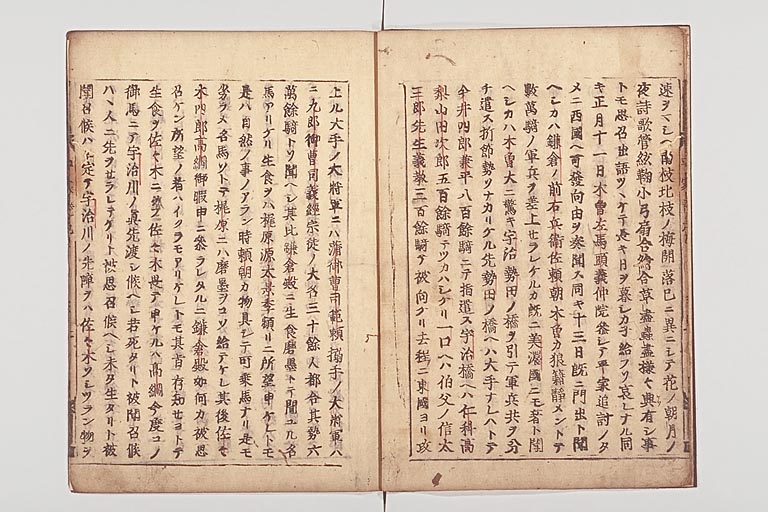 速ヲマシヘ南枝北枝ノ梅開落已ニ異ニシテ花ノ朝月ノ
夜詩歌管絃鞠小弓扇合繪合草盡蟲盡樣々興有シ事
トモ思召出語ツヽケテ長キ日ヲ暮シカヲ給フソ哀レナル同
キ正月十一日木曽左馬頭義仲院參シテ平家追討ノタ
メニ西國ヘ可發向由ヲ奏聞ス同キ十三日既ニ門出ト聞
ヘシカハ鎌倉ノ前右兵衛佐頼朝木曽カ狼藉静メントテ
數萬騎ノ軍兵ヲ差上セラレケルカ既ニ美濃國ニモ着ト聞
ヘシカハ木曽大ニ驚キ宇治勢田ノ橋ヲ引テ軍兵共ヲ分
チ遣ス折節勢ソナカリケル先勢田ノ橋ヘハ大手ナレハトテ
今井四郎兼平八百餘騎ニテ指遣ス宇治橋ヘハ仁科高
梨山田次郎五百餘騎テツカハシケリ一口ヘハ伯父ノ信太
三郎先生義教三百餘騎テ被向ケリ去程ニ東國ヨリ攻
上ル大手ノ大将軍ニハ蒲御曹司範頼搦手ノ大将軍ハ
二九郎御曹司義經宗徒ノ大名三十餘人都合其勢六
萬餘騎トソ聞ヘシ其比鎌倉殿ニ生食磨墨トテ聞ユル名
馬アリケリ生食ヲハ梶原源太景季頻リニ所望申ケレトモ
是ハ自然ノ事ノアラン時頼朝カ物具シテ可乗馬ナリ是モ
劣ラヌ名馬ソトテ梶原ニハ磨墨ヲコソ給テケレ其後佐々
木四郎高綱御暇申ニ參ラレタルニ鎌倉殿如何カ被思
召ケン所望ノ者ハイクラモアリケレトモ其旨存知セヨトテ
生食ヲ佐々木ニ給フ佐々木畏テ申ケルハ高綱今度コノ
御馬ニテ宇治川ノ真先渡シ候ヘシ若死タリト被聞召候
ハヽ人ニ先ヲセラレテケリト被思召候ヘシ未タ生タリト被
聞召候ハヽ定テ宇治川ノ先陣ヲハ佐々木ソシツラン物ヲ